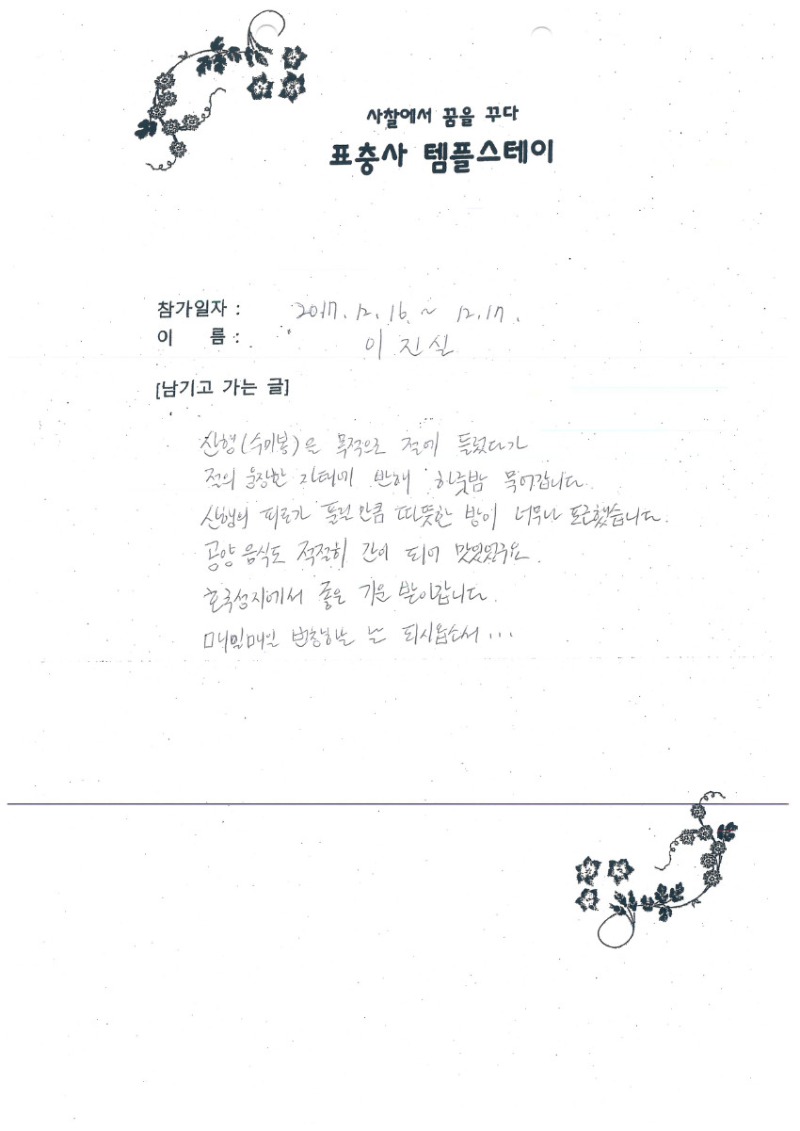 사찰에서 꿈을 꾸다
표충사 템플스테이
참가일자 : 2017. 12. 16. ~ 12. 17.
이 름 : 이진실
[남기고 가는 글]
산행(수미봉)을 목적으로 절에 들렀다가
절의 웅장한 자태에 반해 하룻밤 묵어갑니다.
산행의 피로가 풀린 만큼 따뜻한 방이 너무나 포근했습니다.
공양 음식도 적절히 간이 되어 맛있었구요.
호국성지에서 좋은 기운 받아갑니다.
매일매일 행 날 되시옵소서...